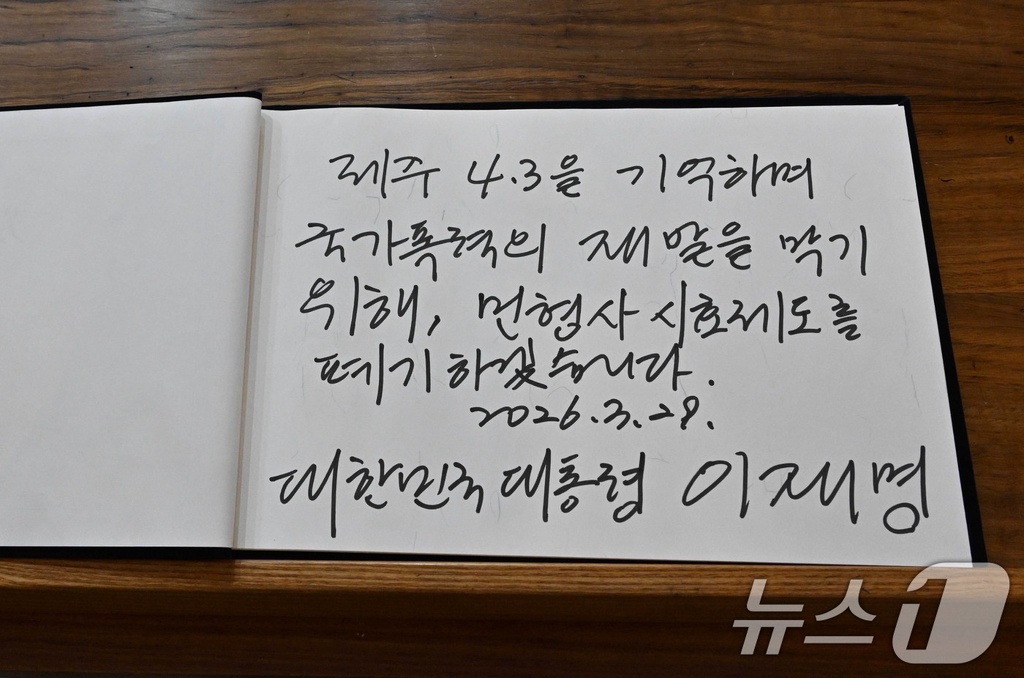 제주 4.3을 기억하며
국가폭력의 재발을 막기
위해, 민형사 시효제도를
폐기하겠습니다.
2026.3.29.
대한민국 대통령 이재명
뉴스1